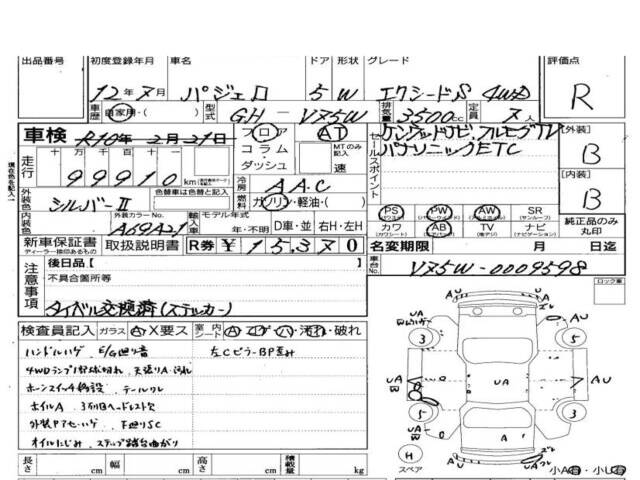 出品番号 初度登録年月 車名 ドア 形状 グレード 評価点
12年7月 パジェロ 5 W エクシードS 4WD R
車歴 自家用・( ) 型式 GH - V75W 排気量 3500cc 定員 7人
車検 R10年2月21日 フロア AT セールスポイント ケンウッドナビ アルモグTV
パナソニックETC
コラム MTのみ記入
ダッシュ 速
走行 十万 万 千 百 十 一
99910 km
現在色を記入
外装色 シルバーII 色替車は色と記入
冷房 AAC
燃料 ガソリン・軽油・( )
[外装] B
[内装] B
内装色 外装カラーNo. A69A21 輸入車 モデル年式 年・不明 D車・並 右H・左H
PS PW AW SR
(パワステ) (サンルーフ)
カワ AB TV ナビ
(カワシート) (エアバッグ) (ナビゲーション)
純正品のみ丸印
新車保証書 取扱説明書 R券 ¥15,370
ディーラー捺印あるもの
名変期限 月 日迄
車台No. V75W-0009598
注意事項 後日品【 】
不具合箇所等
タイベル交換済(ステッカー)
ロック車
検査員記入 ガラス A X要ス 室内 シート A コゲ ハ・汚れ・破れ
ハンドルハゲ、E/G廻り音 左Cピラー BP歪み
4WDランプ1部球切れ 天張りA・汚れ
ホーンスイッチ移設 テールワレ
ホイルA 3列目ヘッドレスト欠
外装 下廻りSC
オイルにじみ ステップ踏台曲がり
長さ cm 幅 cm 高さ cm 積載量 kg
3 3
UA UA AU
5 5
A
H
スペア
AU UA
小A 小U